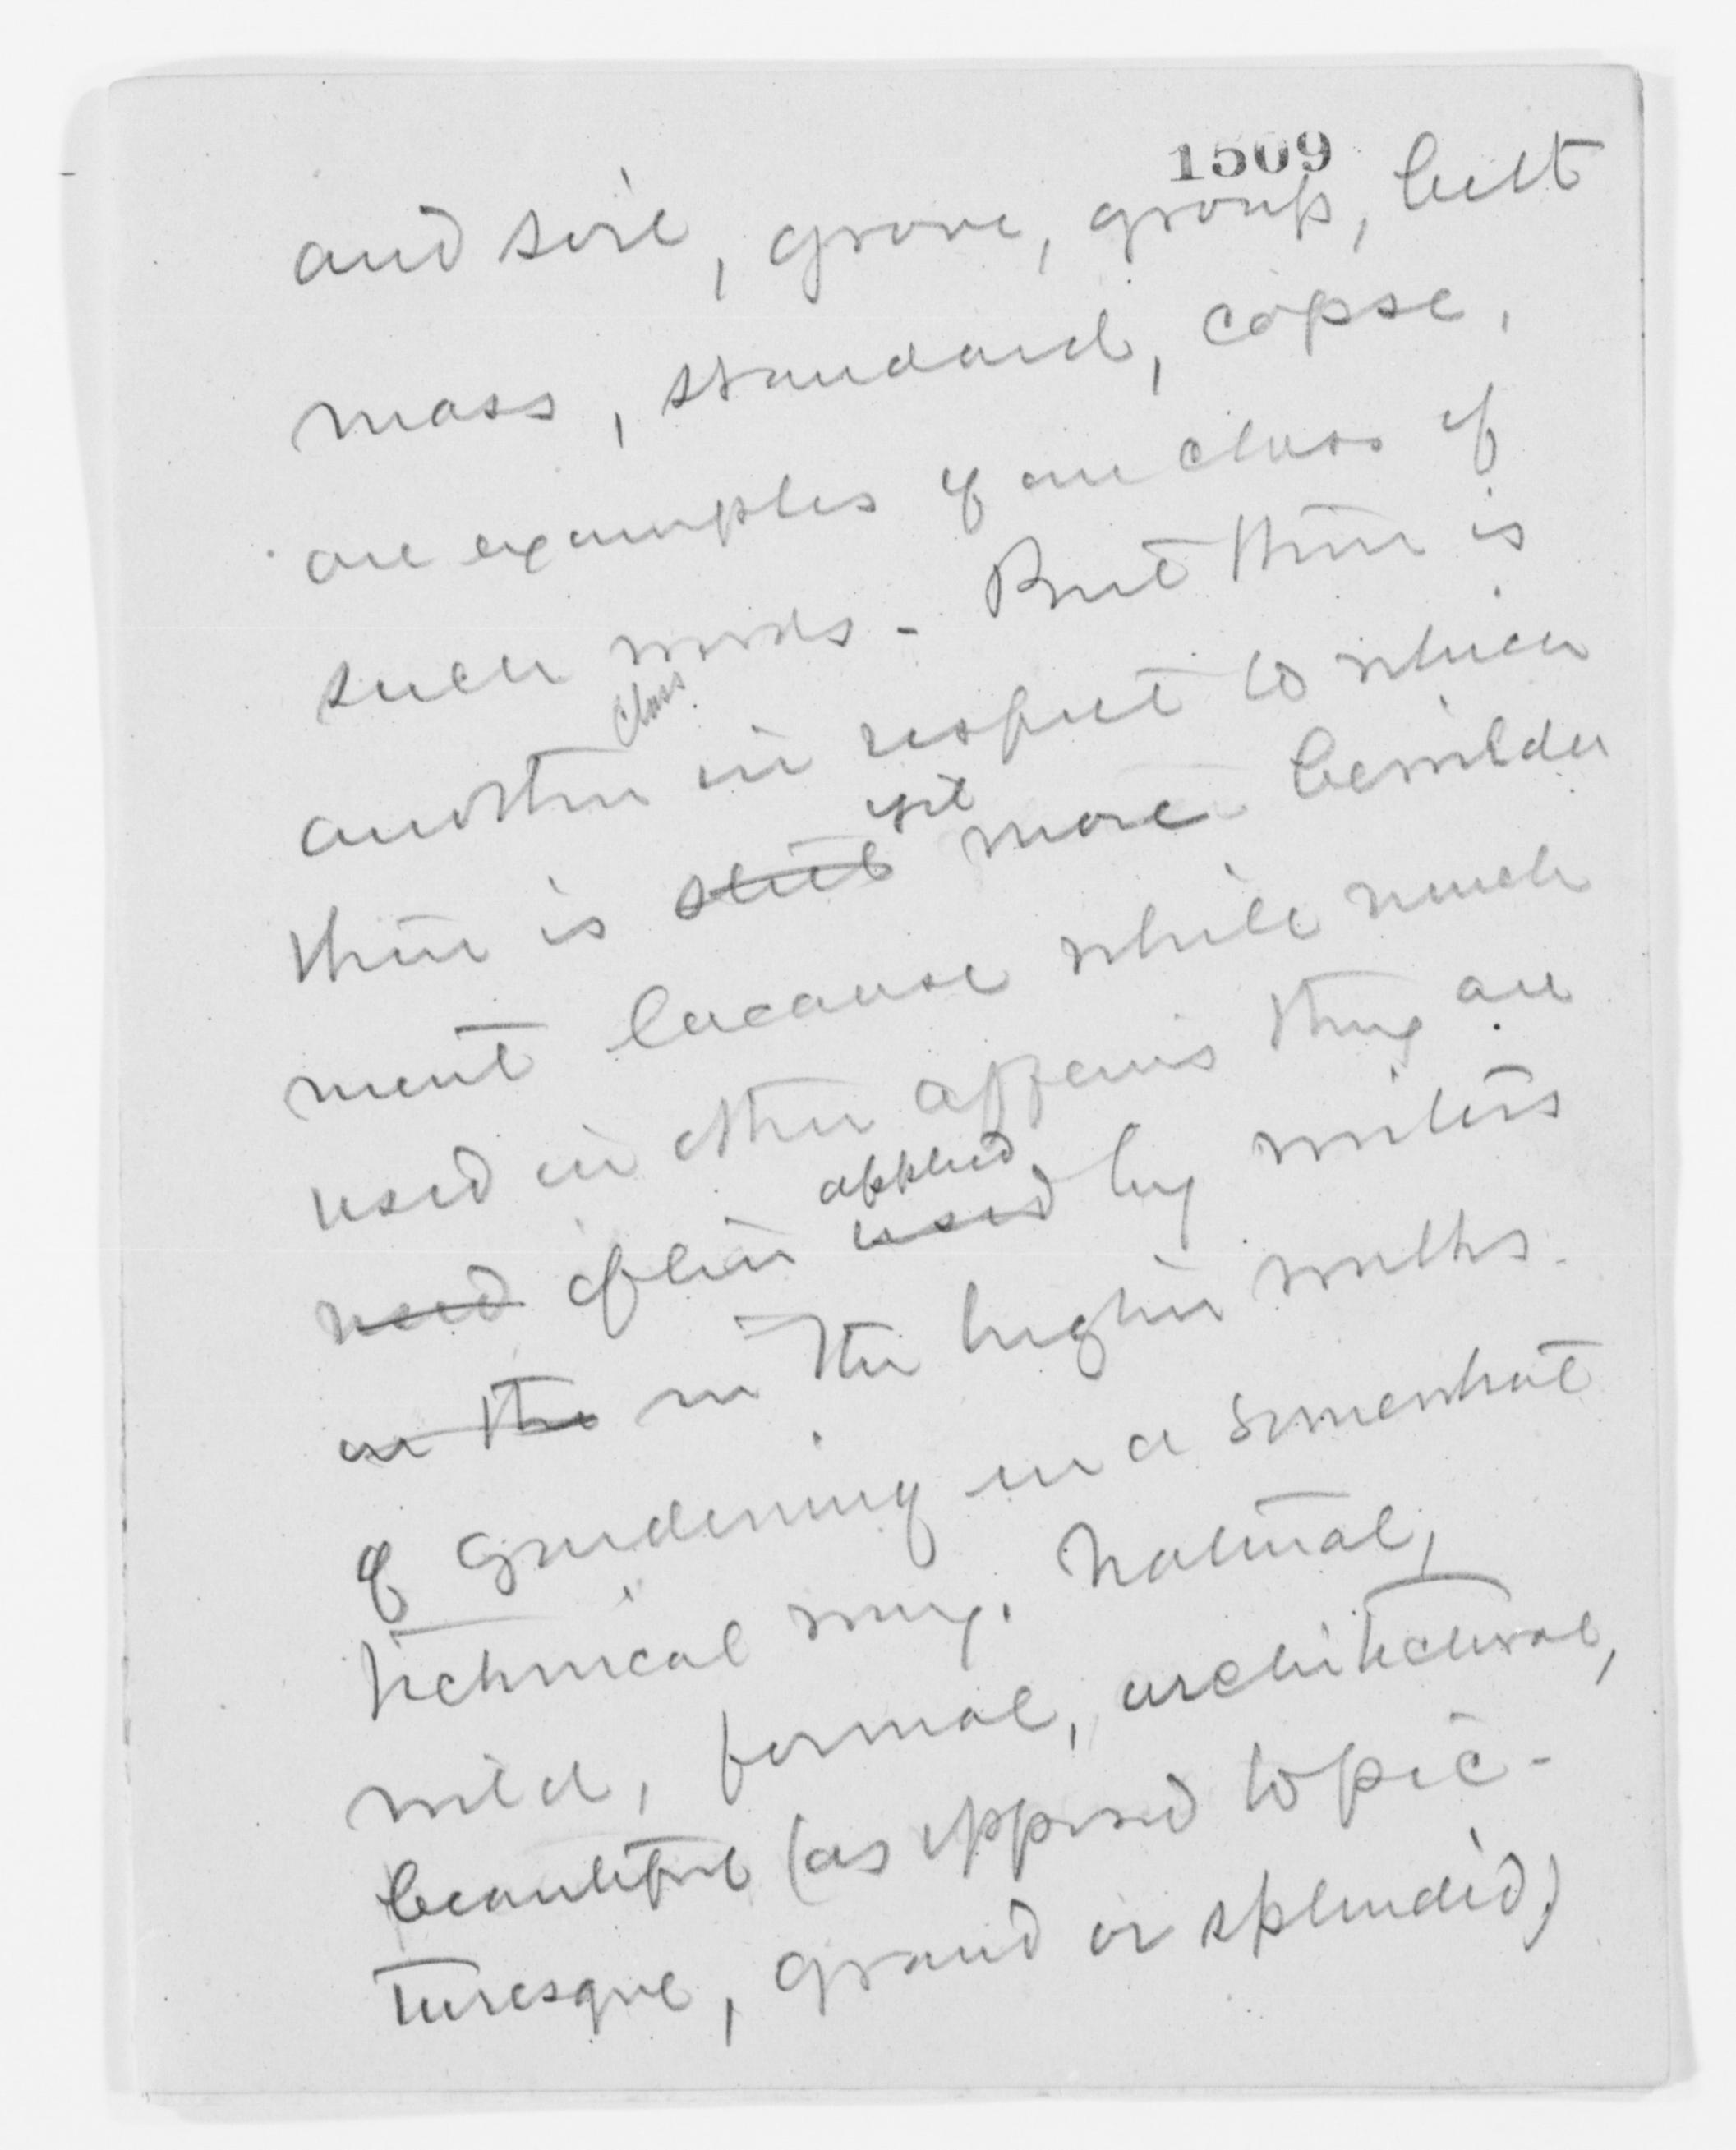 1509
and soil, grove, group, belt
mass, standard, copse,
are examples of one class of
such words - But there is
class
another in respect to which
yet
there is still more bewilder
ment because while much
used in other affairs they are
applied
used often used by writers
in the in the higher walks
of gardening in a somewhat
technical way. Natural,
wild, formal, architectural,
beautiful (as opposed to pic-
turesque, grand or splendid)